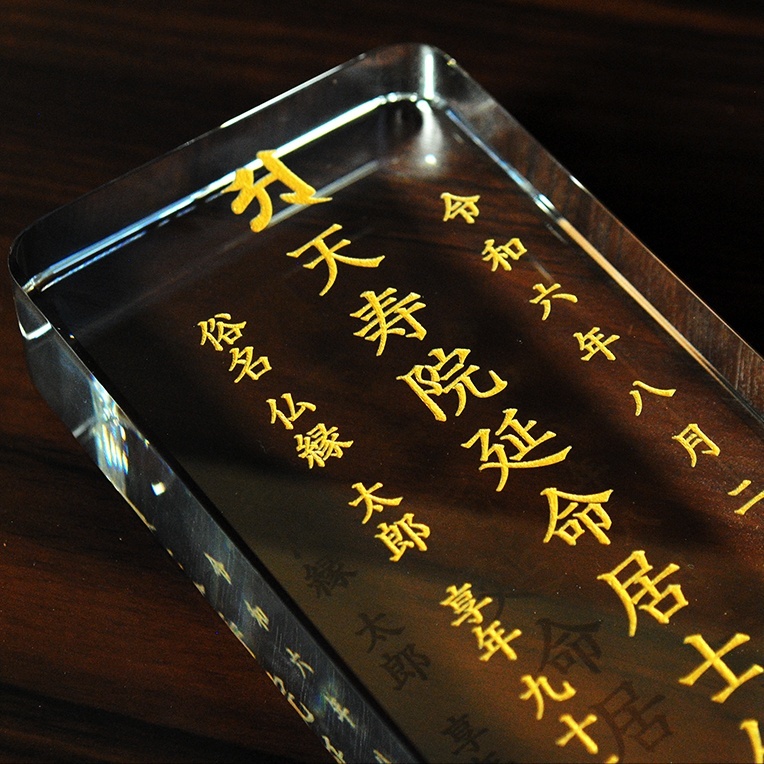 令和六年八月二
𑖀天寿院延命居士
俗名 仏縁 太郎 享年九十